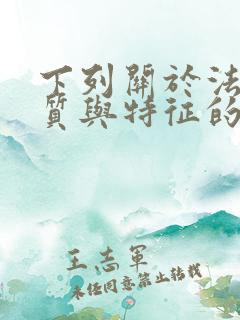 下列關於法
質與特征的
王志軍
未经同意禁止转载